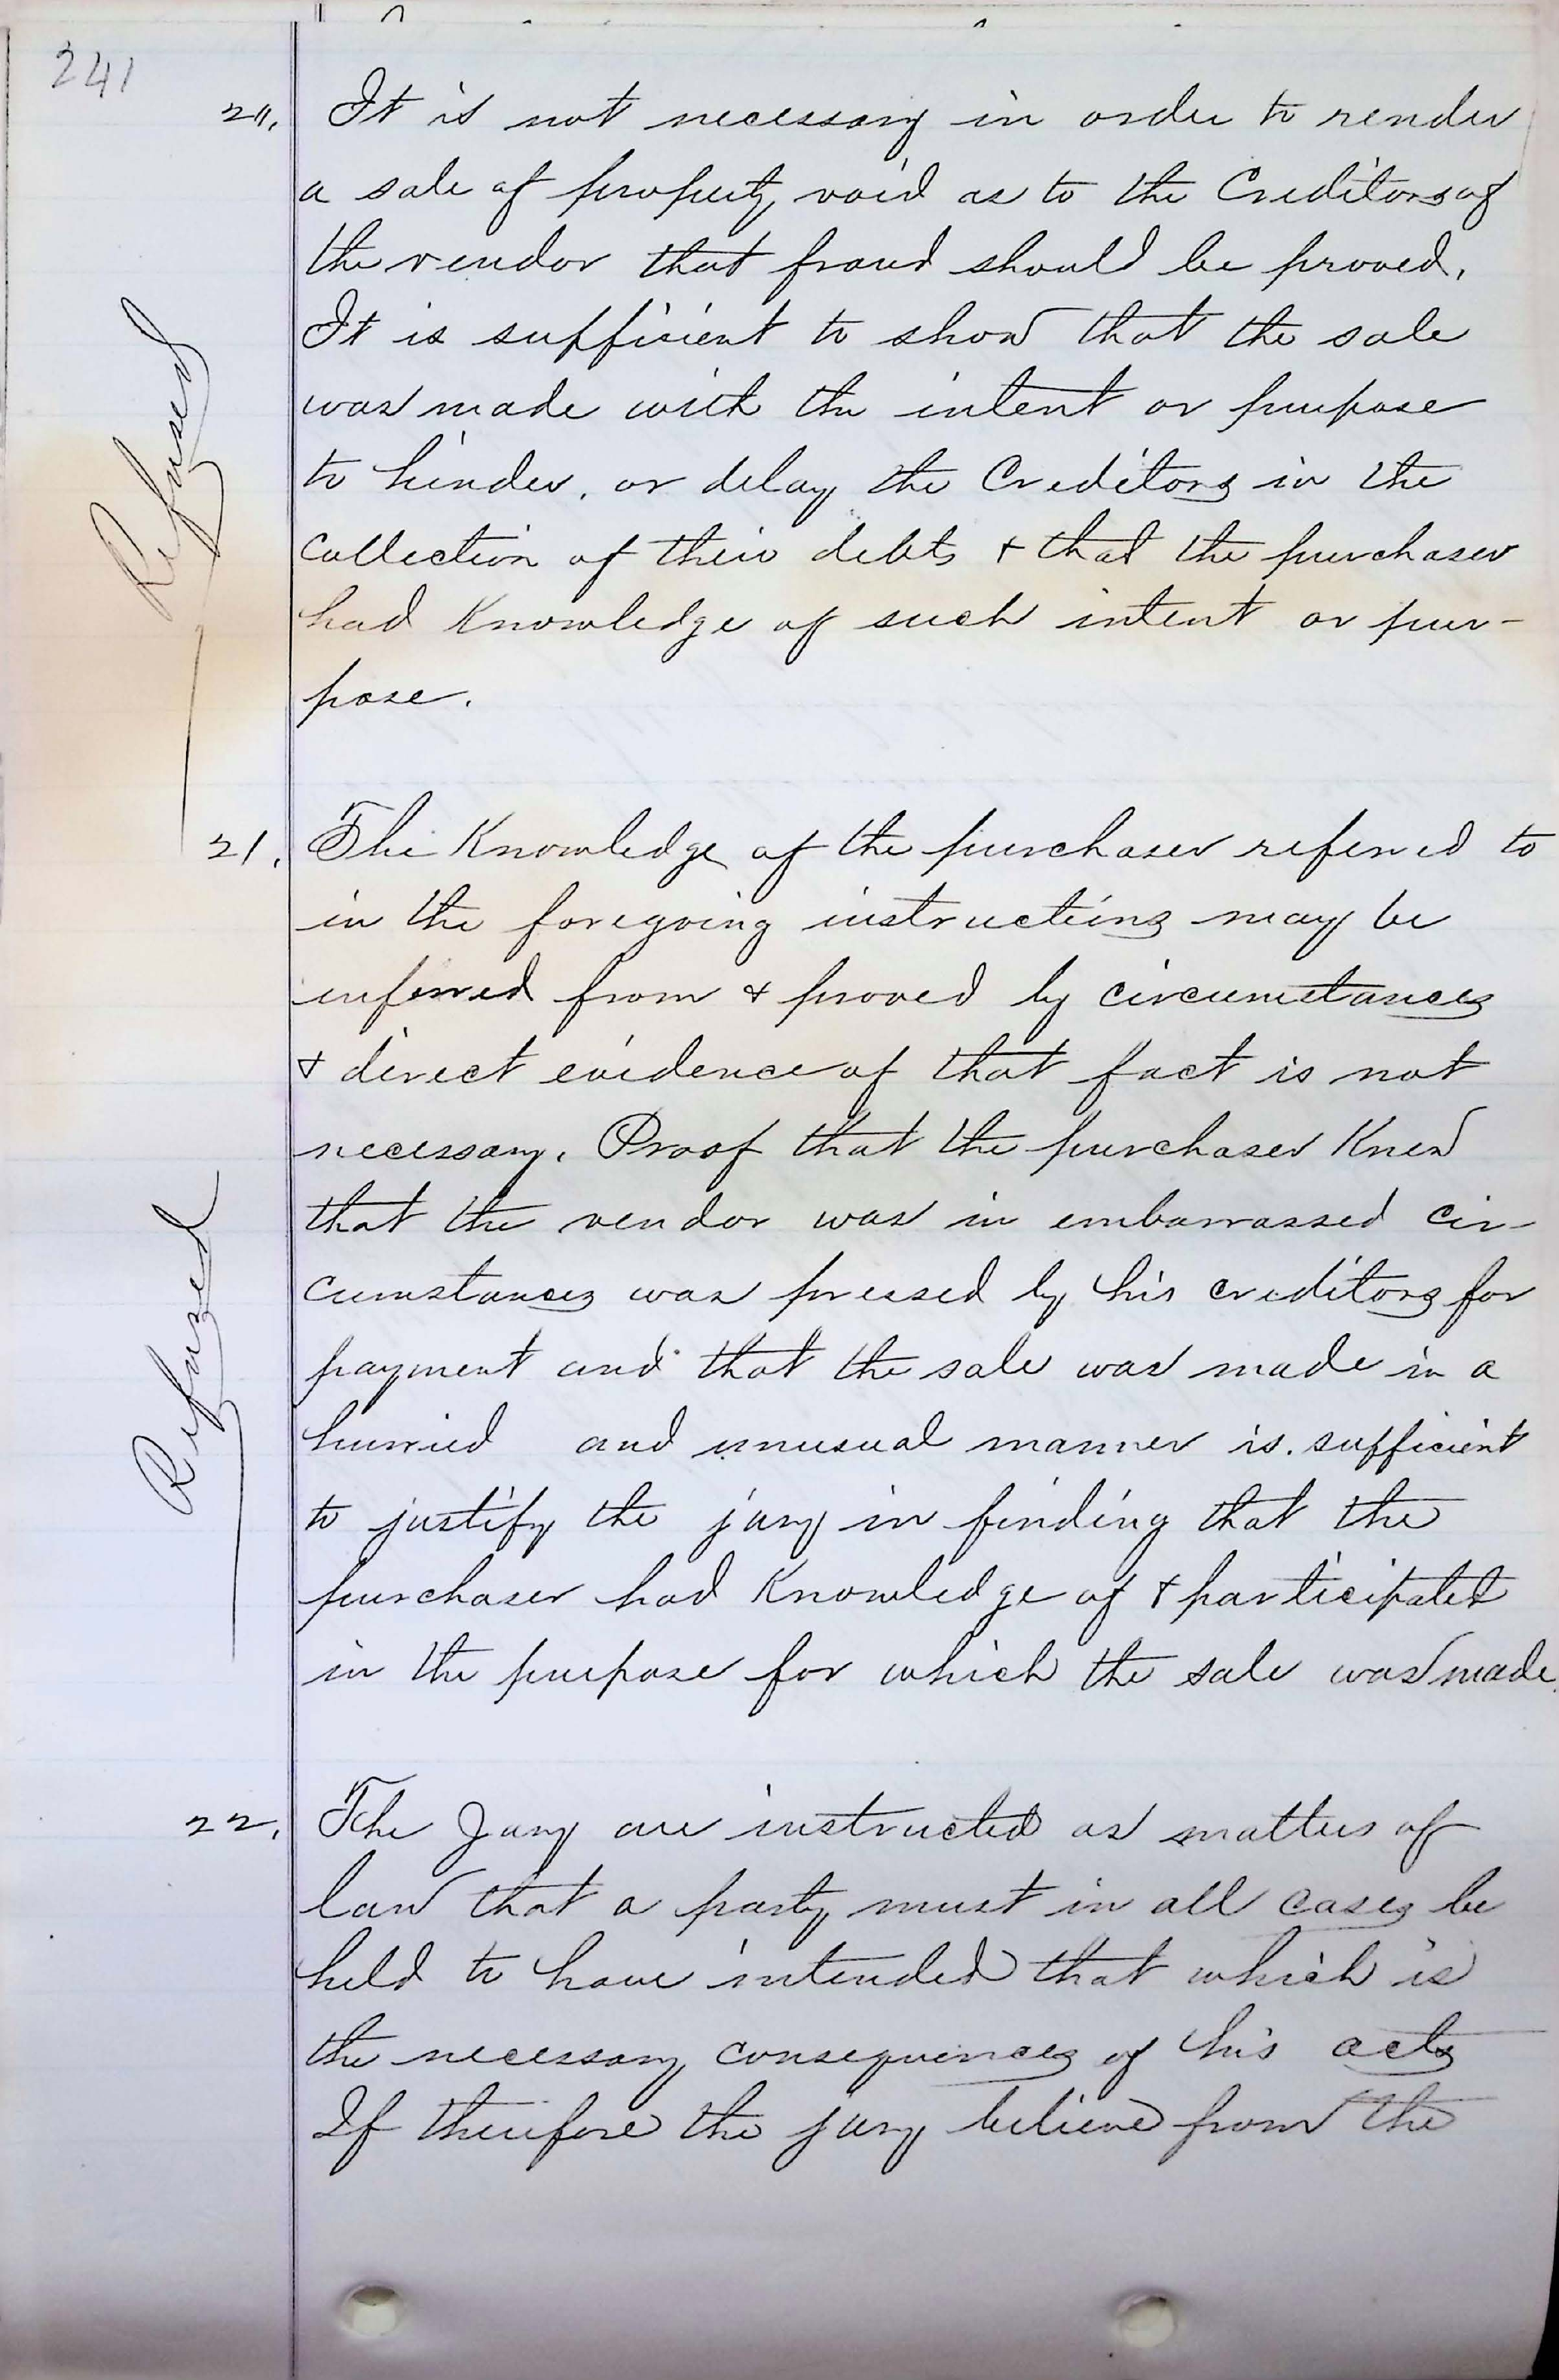 241
20. It is not necessary in order to render
a sale of property void as to the Creditors of
the vendor that fraud should be proved.
It is sufficient to show that the sale
was made with the intent or purpose
to hinder, or delay the Creditors in the
Collection of their debts & that the purchaser
had Knowledge of such intent or pur-
pose.
Refused
21. The Knowledge of the purchaser referred to
in the foregoing instructions may be
inferred from & proved by circumstances
& direct evidence of that fact is not
necessary. Proof that the purchaser Knew
that the vendor was in embarrassed cir-
cumstances was pressed by his creditors for
payment and that the sale was made in a
hurried and unusual manner is sufficient
to justify the jury in finding that the
purchaser had Knowledge of & participated
in the purpose for which the sale was made.
Refused
22. The Jury are instructed as matters of
law that a party must in all cases be
held to have intended that which is
the necessary consequences of his acts
If therefore the jury believe from the